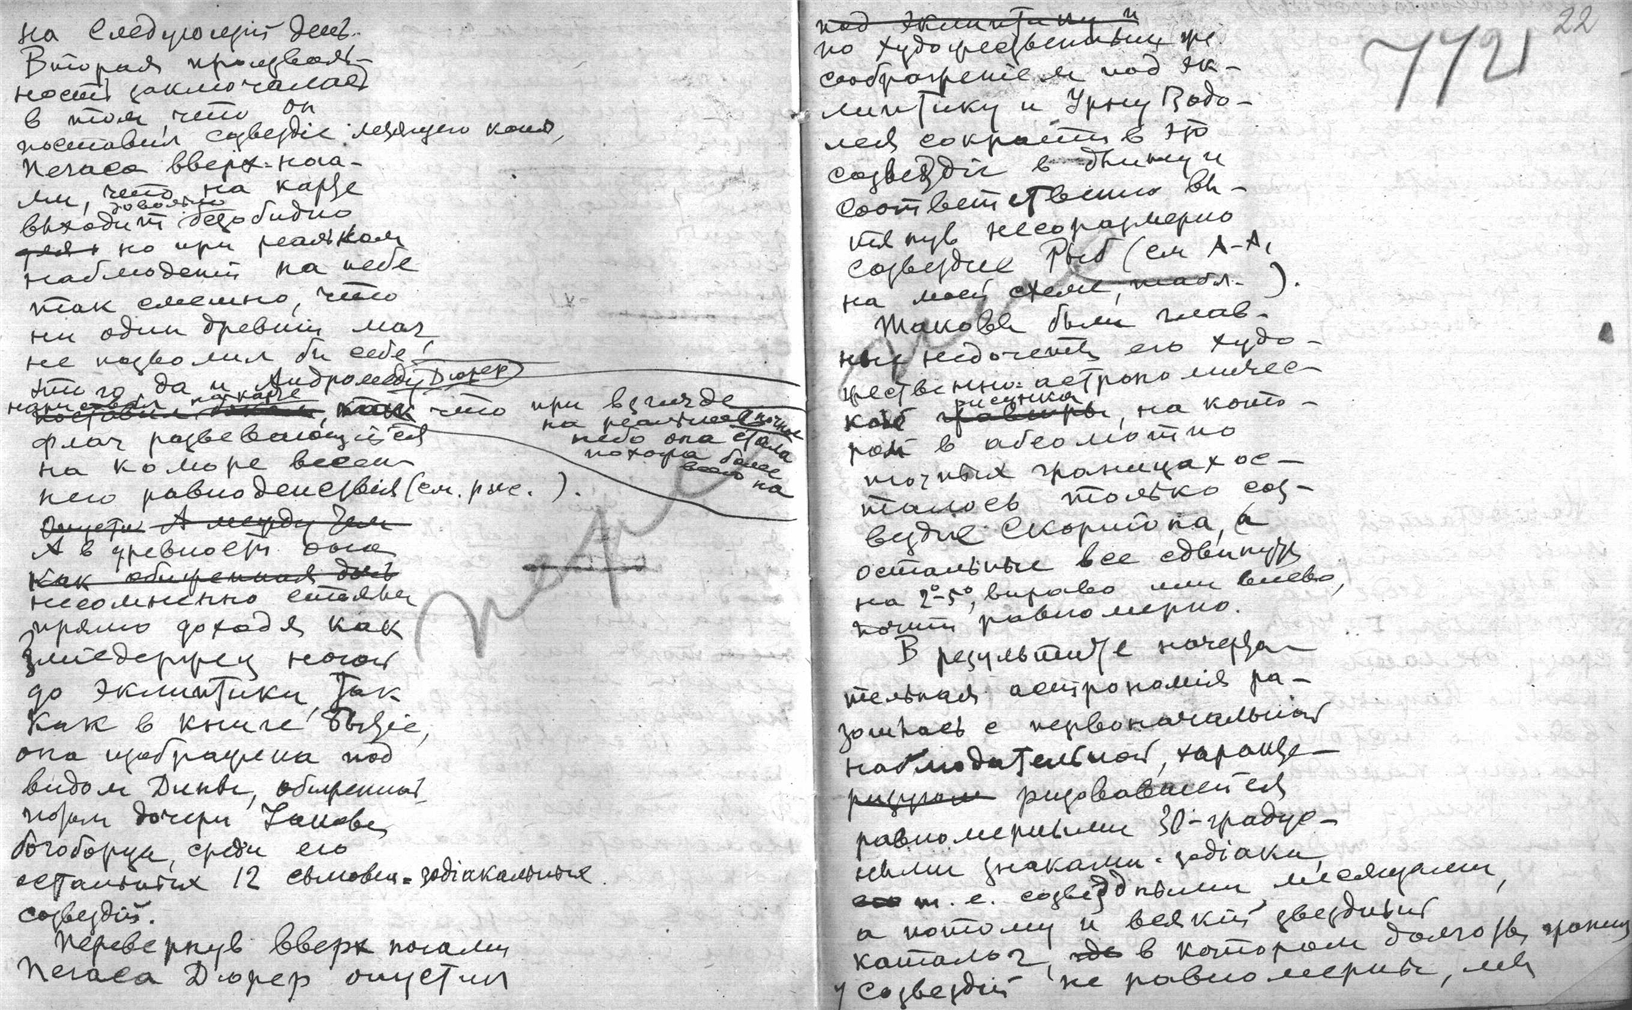 на следующий день.
Вторая произволь-
ность заключалась
в том, что он
поставил созвездіе летящего коня,
Пегаса вверх нога-
ми, что на карте
довольно
выходит безобидно
но при реальном
наблюденіи на небе
так смешно, что
ни один древній маг
не позволил бы себе
этого да и Андромеду Дюрер
нарисовал на карте так что при взгляде
на реальное ночное
небо она стала
похожа более
всего на
флаг развевающійся
на коморе весен-
него равноденствія (см. рис. ).
Опустив А между тем
А в древности она
как обиженная дочь
несомненно стояла
прямо доходя как
Змиедержец ногой
до эклиптики, так
как в книге Бытіе,
она изображена под
видом Дины, обиженной
потом дочери Іакова
богоборца, среди его
остальных 12 сыновей-зодіакальных
созвездій.
Перевернув вверх ногами
Пегаса Дюрер опустил
22
772
под эклиптику и
по художественным же
соображеніем под эк-
липтику и Урну Водо-
лея сократив это
созвездіе в длину и
соответственно вы-
тянув несоразмерно
созвездіе Рыб (см А-А,
на моей схеме, табл. ).
Таковы были глав-
ные недочеты его худо-
жественно-астрономичес-
кой рисунка
гравюры, на кото-
рой в абсолютно
точных границах ос-
талось только соз-
вездіе Скорпіона, а
остальные все сдвинуты
на 2°-5°, вправо или влево,
почти равномерно.
В результате начерта-
тельная астрономія ра-
зошлась с первоначальной
наблюдательной, характе-
ризовавшейся
равномерными 30-градус-
ными знаками-зодіака,
т. е. созвездными месяцами,
а потому и всякій звездный
каталог, в котором долготы границ
созвездій не равномерны,